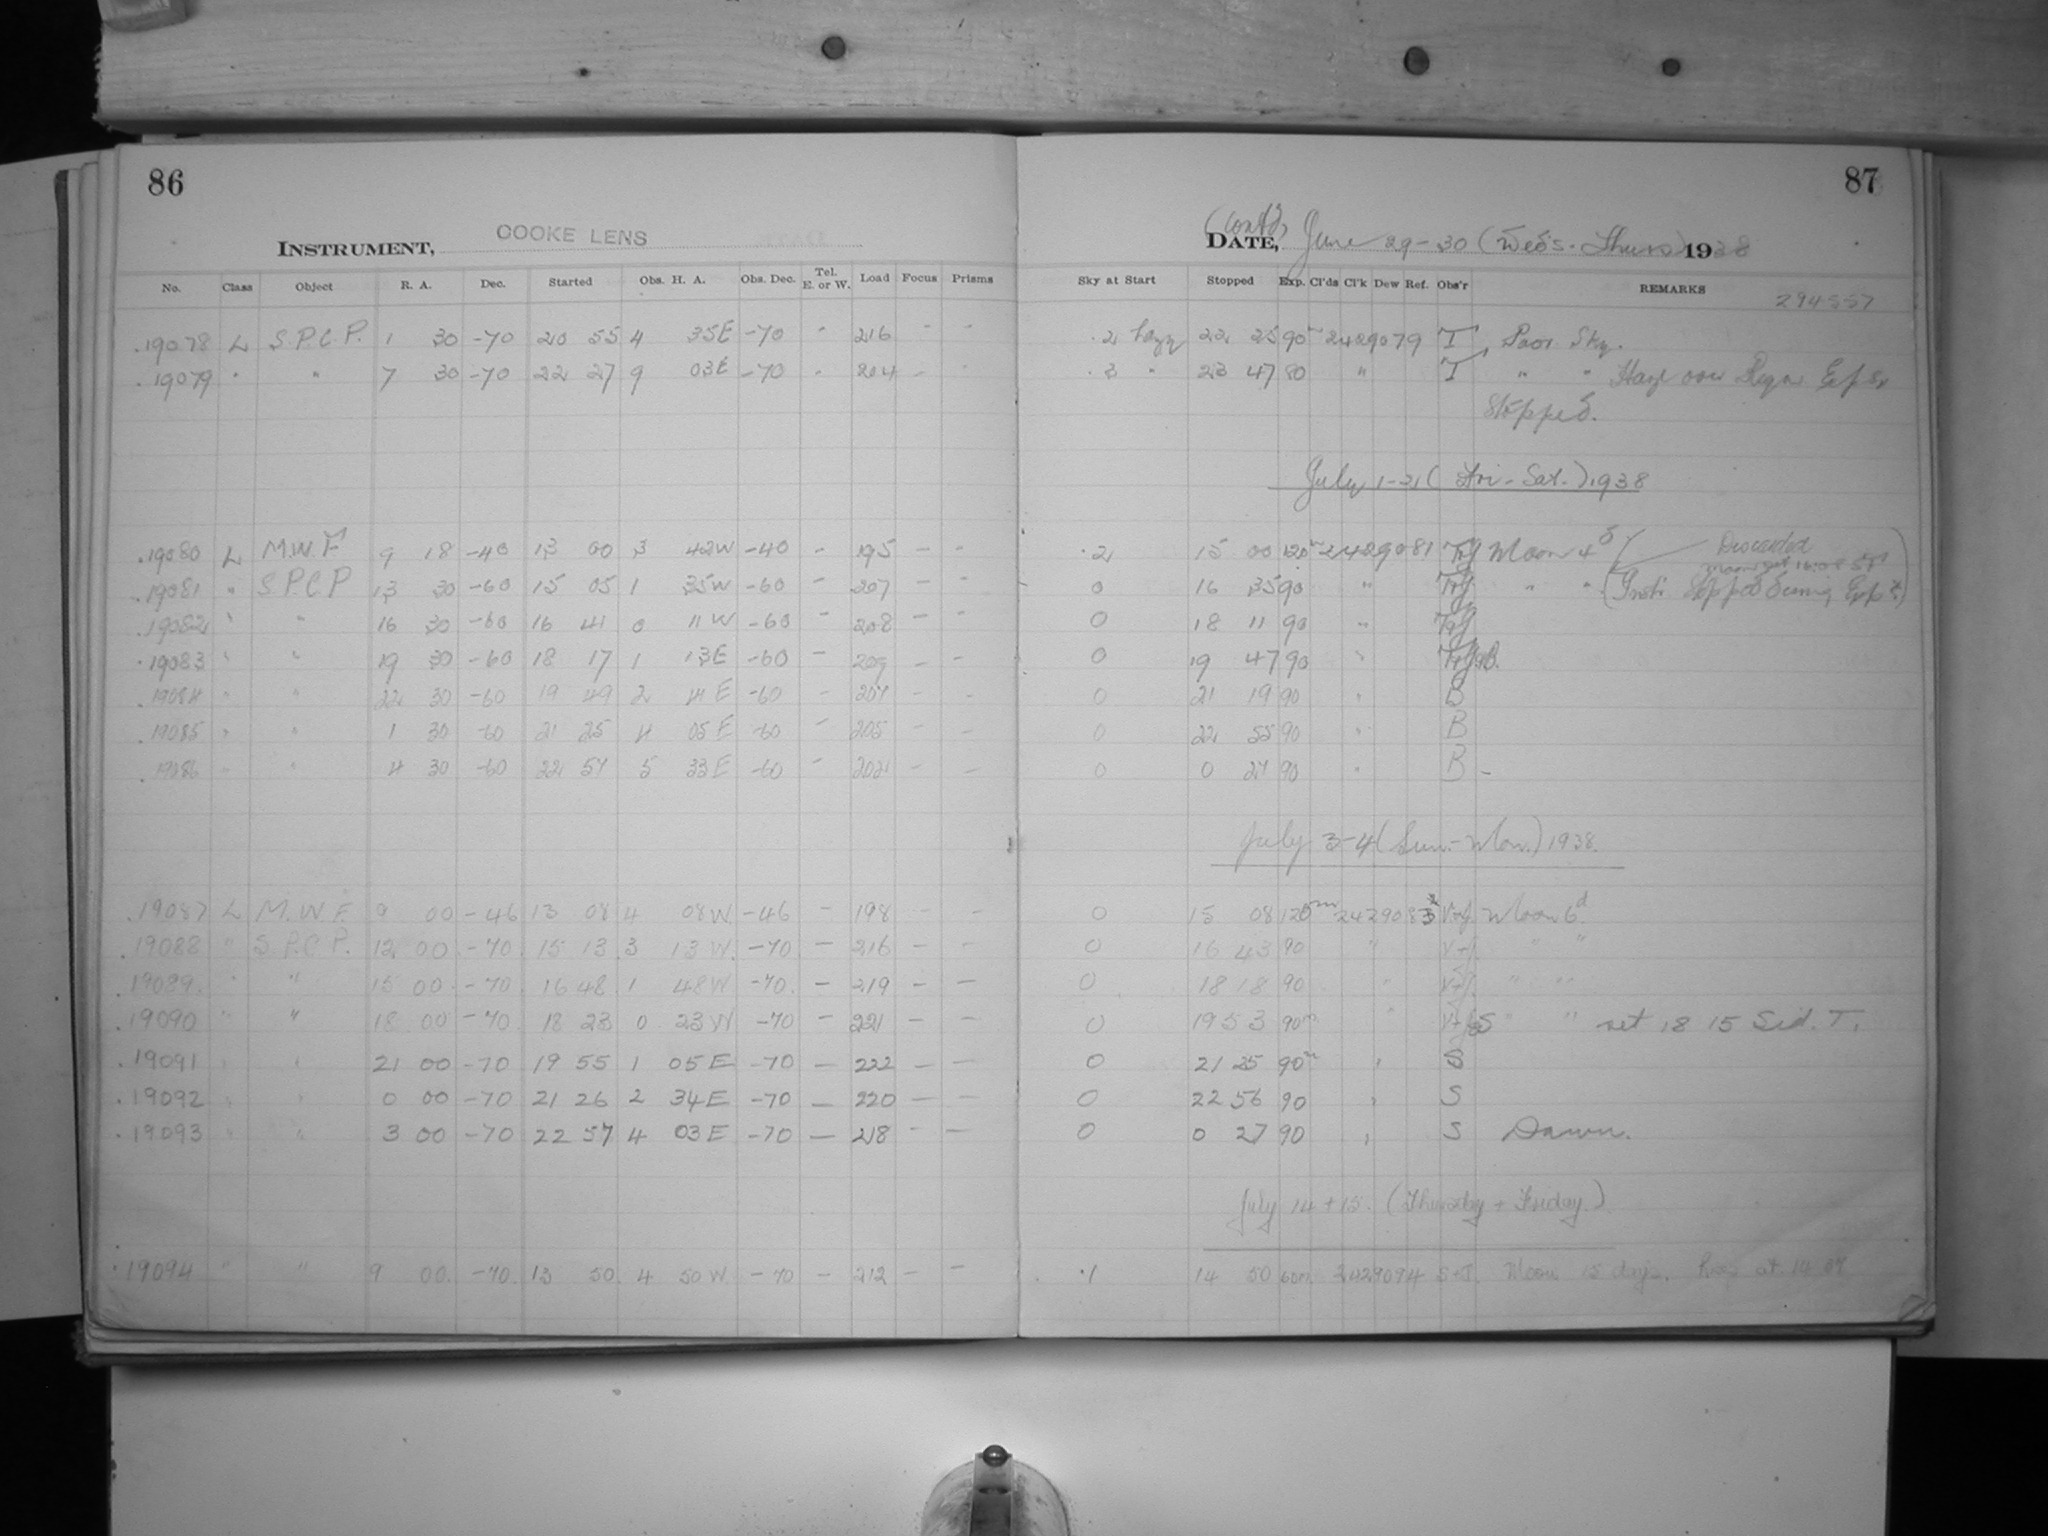 86
87
INSTRUMENT, COOKE LENS
(Cont'd) DATE, June 29-30 (Weds.-Thurs.) 1938
No. Class Object R. A. Dec. Started Obs. H. A. Obs. Dec. Tel. E. or W. Load Focus Prisms Sky at Start Stopped Exp. Cl'ds Cl'k Dew Ref. Obs'r REMARKS
294557
.19078 L S.P.C.P. 1 30 -70 20 55 4 35E -70 - 216 - - .2 hazy 22 25 90m 2429079 T Poor Sky.
.19079 " " 7 30 -70 22 27 9 03E -70 - 204 - - .3 " 23 47 80 " T " " Haze over Region Exp.
Stopped.
July 1-2 (Fri-Sat.) 1938
.19080 L M.W.F. 9 18 -40 13 00 3 42W -40 - 195 - - .2 15 00 120m 2429081 Moon 4d Discarded
.19081 " S.P.C.P. 13 30 -60 15 05 1 35W -60 - 207 - - 0 16 35 90 " " " (Instr. Stopped During Exp.)
.19082 " " 16 30 -60 16 41 0 11W -60 - 208 - - 0 18 11 90 "
.19083 " " 19 30 -60 18 17 1 13E -60 - 209 - - 0 19 47 90 "
.19084 " " 22 30 -60 19 49 2 41E -60 - 207 - - 0 21 19 90 " B
.19085 " " 1 30 -60 21 25 4 05E -60 - 205 - - 0 22 55 90 " B
.19086 " " 4 30 -60 22 57 5 33E -60 - 202 - - 0 0 27 90 " B -
July 3-4 (Sun.-Mon.) 1938.
.19087 L M.W.F. 9 00 -46 13 08 4 08W -46 - 198 - - 0 15 08 120m 2429083 V+J. Moon 6d.
.19088 " S.P.C.P. 12 00 -70 15 13 3 13W -70 - 216 - - 0 16 43 90 " V+J. " "
.19089. " " 15 00 -70 16 48 1 48W -70 - 219 - - 0 18 18 90 " V+J. " "
.19090 " " 18 00 -70 18 23 0 23W -70 - 221 - - 0 19 53 90m " " " set 18 15 Sid. T.
.19091 " " 21 00 -70 19 55 1 05E -70 - 222 - - 0 21 25 90m " S
.19092 " " 0 00 -70 21 26 2 34E -70 - 220 - - 0 22 56 90 " S
.19093 " " 3 00 -70 22 57 4 03E -70 - 218 - - 0 0 27 90 " S Dawn.
July 14+15. (Thursday + Friday)
.19094 " " 9 00. -70. 13 50. 4 50W -70 - 212 - - .1 14 50 60m 2429094 S+J. Moon 15 days. Rose at 14 07